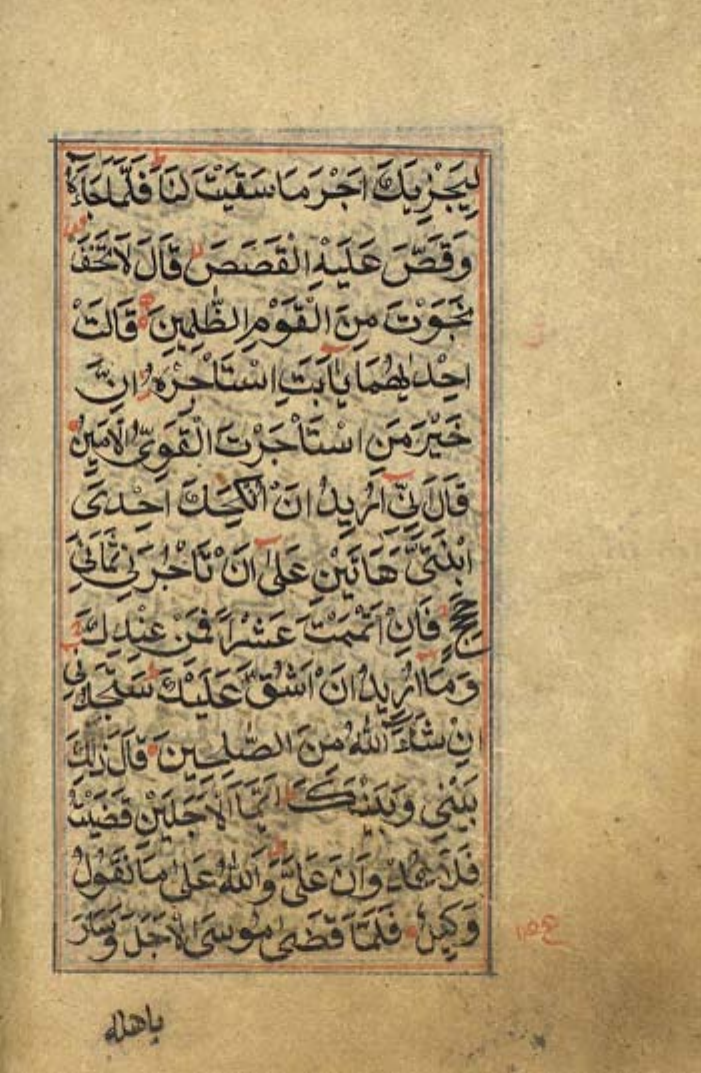 لِيَجْزِيَكَ اَجْرَ مَا سَقَيْتَ لَنَا ط فَلَمَّا جَآءَهٗ
وَقَصَّ عَلَيْهِ الْقَصَصَ قَالَ لَا تَخَفْ
نَجَوْتَ مِنَ الْقَوْمِ الظّٰلِمِيْنَ قَالَتْ
اِحْدٰىهُمَا يٰۤاَبَتِ اسْتَاْجِرْهُ اِنَّ
خَيْرَ مَنِ اسْتَاْجَرْتَ الْقَوِىُّ الْاَمِيْنُ
قَالَ اِنِّىْ اُرِيْدُ اَنْ اُنْكِحَكَ اِحْدَى
ابْنَتَىَّ هَاتَيْنِ عَلٰى اَنْ تَاْجُرَنِىْ ثَمَانِىَ
حِجَجٍ فَاِنْ اَتْمَمْتَ عَشْرًا فَمِنْ عِنْدِكَ
وَمَا اُرِيْدُ اَنْ اَشُقَّ عَلَيْكَ سَتَجِدُنِىْ
اِنْ شَآءَ اللّٰهُ مِنَ الصّٰلِحِيْنَ قَالَ ذٰلِكَ
بَيْنِىْ وَبَيْنَكَ اَيَّمَا الْاَجَلَيْنِ قَضَيْتُ
فَلَا عُدْوَانَ عَلَىَّ وَاللّٰهُ عَلٰى مَا نَقُوْلُ
وَكِيْلٌ فَلَمَّا قَضٰى مُوْسَى الْاَجَلَ وَسَارَ
باهله